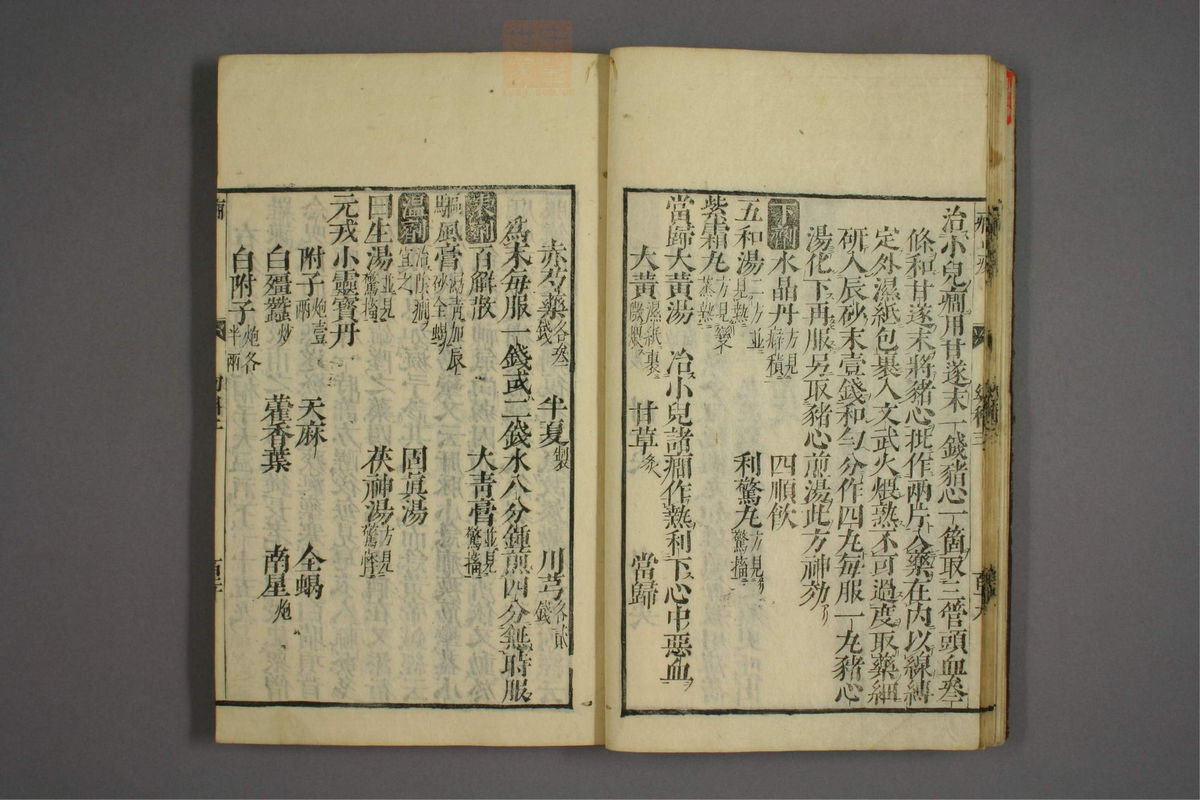 治小兒癇用甘遂末一錢豬心一箇取三管頭血叄
條和甘遂末將豬心批作兩片入藥在內以線縛
定外濕紙包裹入文武火煨熟不可過度取藥細
研入辰砂末壹錢和勻分作四丸每服一丸豬心
湯化下再服另取豬心煎湯此方神効
下劑 水晶丹 方見癖積 四順飲
五和湯 二方並見熱 利驚丸 方見驚搐
紫霜丸 方見變蒸熱
當歸大黃湯 治小兒諸癇作熱利下心中惡血
大黃 濕紙裹微煨 甘草 炙 當歸
赤芍藥 各叄錢 半夏 製 川芎 各貳錢
為末每服一錢或二錢水八分鍾煎四分無時服
涼劑 百解散 大青膏 並見驚搐
驅風膏 加辰砂全蝎
溫劑 治陰癇宜之 固眞湯
回生湯 並見驚搐 茯神湯 方見驚悸
元戎小靈寶丹
附子 炮壹兩 天麻 全蝎
白殭蠶 炒 藿香葉 南星 炮
白附子 炮各半兩